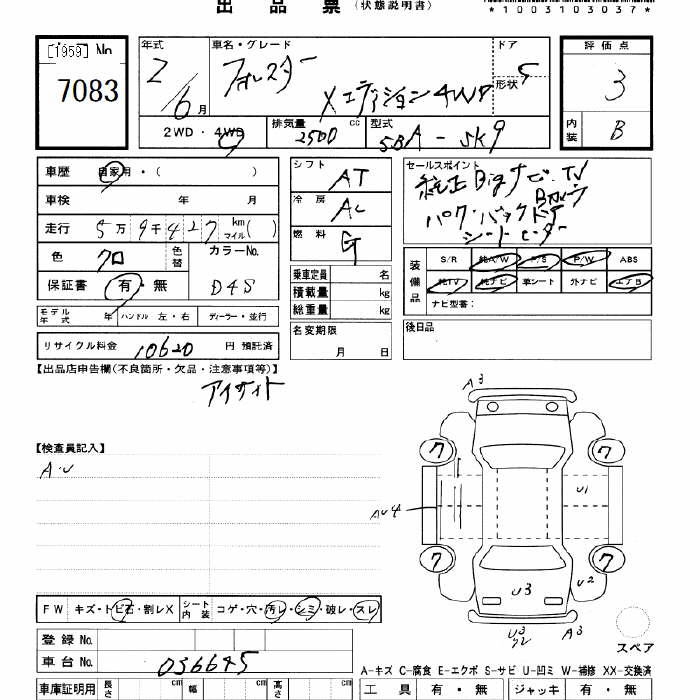 出品票（状態説明書）
*1003103037*
[1959] No
7083
年式
2／6月
車名・グレード
フォレスター
Xエディション4WD
ドア
形状
5
評価点
3
内装
B
2WD・4WD
排気量 2500 cc
型式 5BA-SK9
車歴 自家用・（ ）
車検 年 月
走行 5万9千427 km マイル（ ）
色 クロ
色替
カラーNo.
D4S
保証書 有・無
モデル年式 年
ハンドル 左・右
ディーラー・並行
リサイクル料金 10620 円 預託済
シフト AT
冷房 AC
燃料 G
乗車定員 名
積載量 kg
総重量 kg
名変期限
月 日
セールスポイント
純正Bigナビ・TV
Bカメラ
パワーバックドア
シートヒーター
装備品
S/R 純A/W P/S P/W ABS
純TV 純ナビ 革シート 外ナビ エアB
ナビ型番：
後日品
【出品店申告欄(不良箇所・欠品・注意事項等)】
アイサイト
【検査員記入】
A・U
A3
7 7
U1
AU4
7 7
U3 U2
U3
A3
スペア
FW キズ・トビ石・割レX
シート内装 コゲ・穴・汚レ・シミ・破レ・スレ
登録No.
車台No. 036645
車庫証明用 長さ cm 幅 cm 高さ cm
A-キズ C-腐食 E-エクボ S-サビ U-凹ミ W-補修 XX-交換済
工具 有・無 ジャッキ 有・無